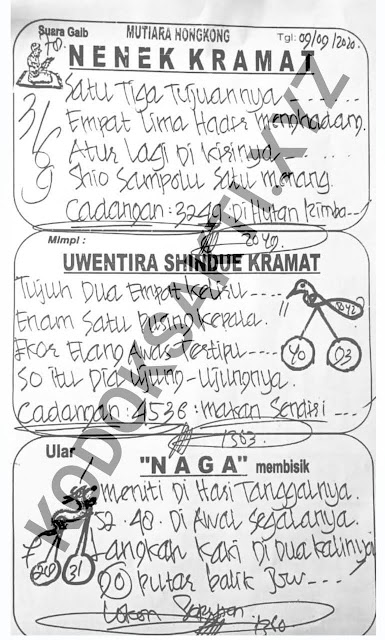 Suara Gaib
MUTIARA HONGKONG
Tgl: 09/09/2020.
NENEK KRAMAT
3/6
9
Satu Tiga Tujuannya
Empat Lima Hadir menghadang.
Atur Lagi Di Kirinya
Shio Sampolu Satu menang.
Cadangan: 3249 Di Hutan Rimba
2049.
Mimpi :
UWENTIRA SHINDUE KRAMAT
Tujuh Dua Empat Keliru
Enam Satu Pusing Kepala.
Ekor Elang Awas Tertipu
So itu Dia ujung-ujungnya.
Cadangan: 4538: makan Sendiri
11
40
03
1383.
Ular
"NAGA" membisik
meniti Di Hari Tanggalnya.
52.48. Di Awal Segalanya.
Langkah kaki Di Dua kalinya
20 31
90 putar balik
KODOKSAKTI.XYZ